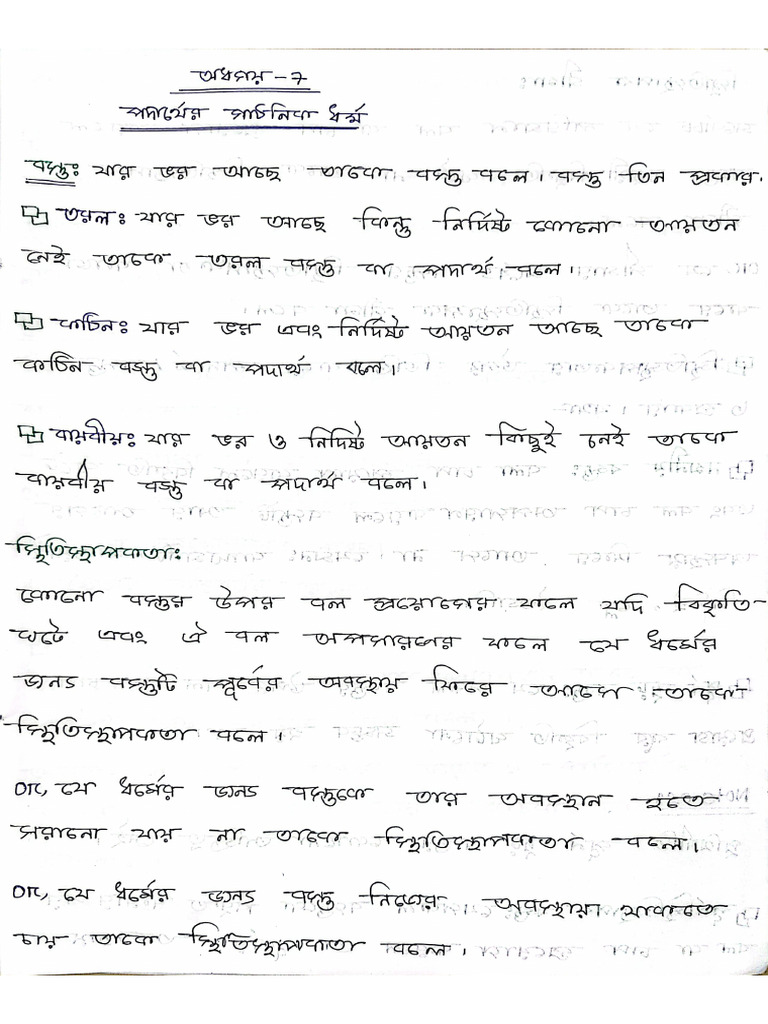 অধ্যায় -7
পদার্থের গাঠনিক ধর্ম
বস্তুঃ যার ভর আছে তাকে বস্তু বলে। বস্তু তিন প্রকার।
তরলঃ যার ভর আছে কিন্তু নির্দিষ্ট কোনো আয়তন
নেই তাকে তরল বস্তু বা পদার্থ বলে।
কঠিনঃ যার ভর এবং নির্দিষ্ট আয়তন আছে তাকে
কঠিন বস্তু বা পদার্থ বলে।
বায়বীয়ঃ যার ভর ও নির্দিষ্ট আয়তন কিছুই নেই তাকে
বায়বীয় বস্তু বা পদার্থ বলে।
স্থিতিস্থাপকতাঃ
কোনো বস্তুর উপর বল প্রয়োগের ফলে যদি বিকৃতি
ঘটে এবং ঐ বল অপসারণের ফলে যে ধর্মের
জন্য বস্তুটি পূর্বের অবস্থায় ফিরে আসে তাকে
স্থিতিস্থাপকতা বলে।
or, যে ধর্মের জন্য বস্তুকে তার অবস্থান হতে
সরানো যায় না তাকে স্থিতিস্থাপকতা বলে।
or, যে ধর্মের জন্য বস্তু নিজের অবস্থায় থাকতে
চায় তাকে স্থিতিস্থাপকতা বলে।